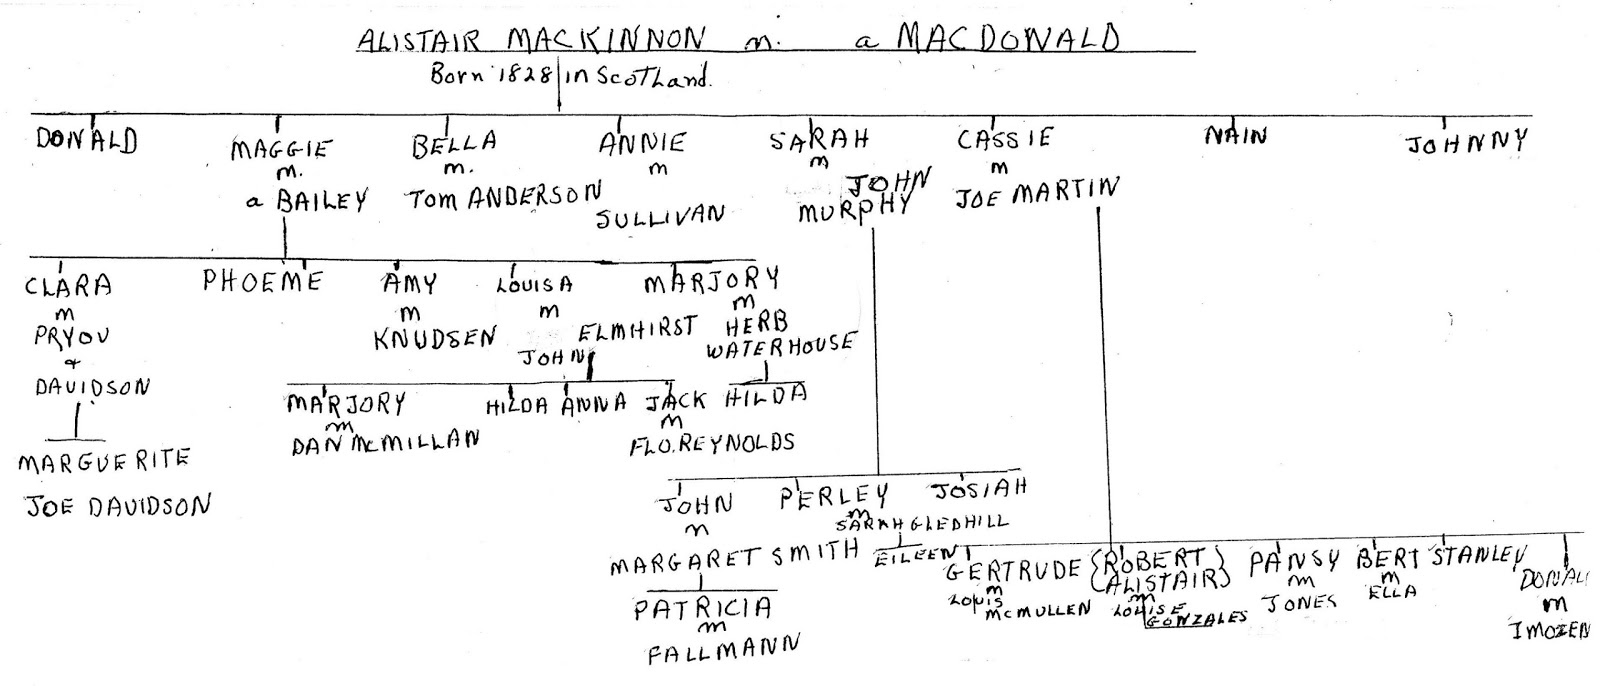 ALISTAIR MACKINNON m. a MACDONALD
Born 1828 in Scotland.
DONALD MAGGIE BELLA ANNIE SARAH CASSIE NAIN JOHNNY
m. m. m m m
a BAILEY Tom ANDERSON SULLIVAN JOHN JOE MARTIN
MURPHY
CLARA PHOEME AMY LOUISA MARJORY
m m m m
PRYOU KNUDSEN ELMHIRST HERB
& JOHN WATERHOUSE
DAVIDSON
MARJORY HILDA ANNA JACK HILDA
m m
DAN McMILLAN FLO.REYNOLDS
MARGUERITE
JOE DAVIDSON
JOHN PERLEY JOSIAH
m m
SARAH GLEDHILL
MARGARET SMITH EILEEN
GERTRUDE {ROBERT PANSY BERT STANLEY DONAL
ALISTAIR}
m m m m m
LOUIS McMULLEN LOUISE JONES ELLA IMOZEN
GONZALES
PATRICIA
m
FALLMANN